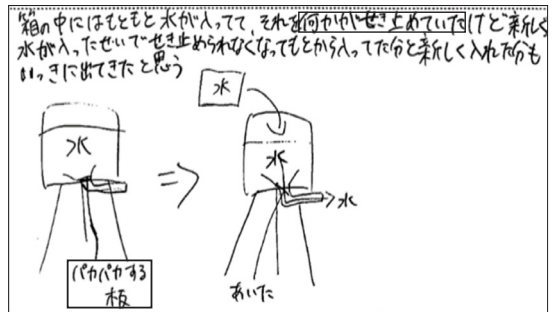 箱の中にはもともと水が入ってて、それを何かがせき止めていたけど新しく
水が入ったせいでせき止められなくなってもとから入ってた分と新しく入れた分も
いっきに出てきたと思う
水
水
水
⇒
→水
パカパカする
板
あいた